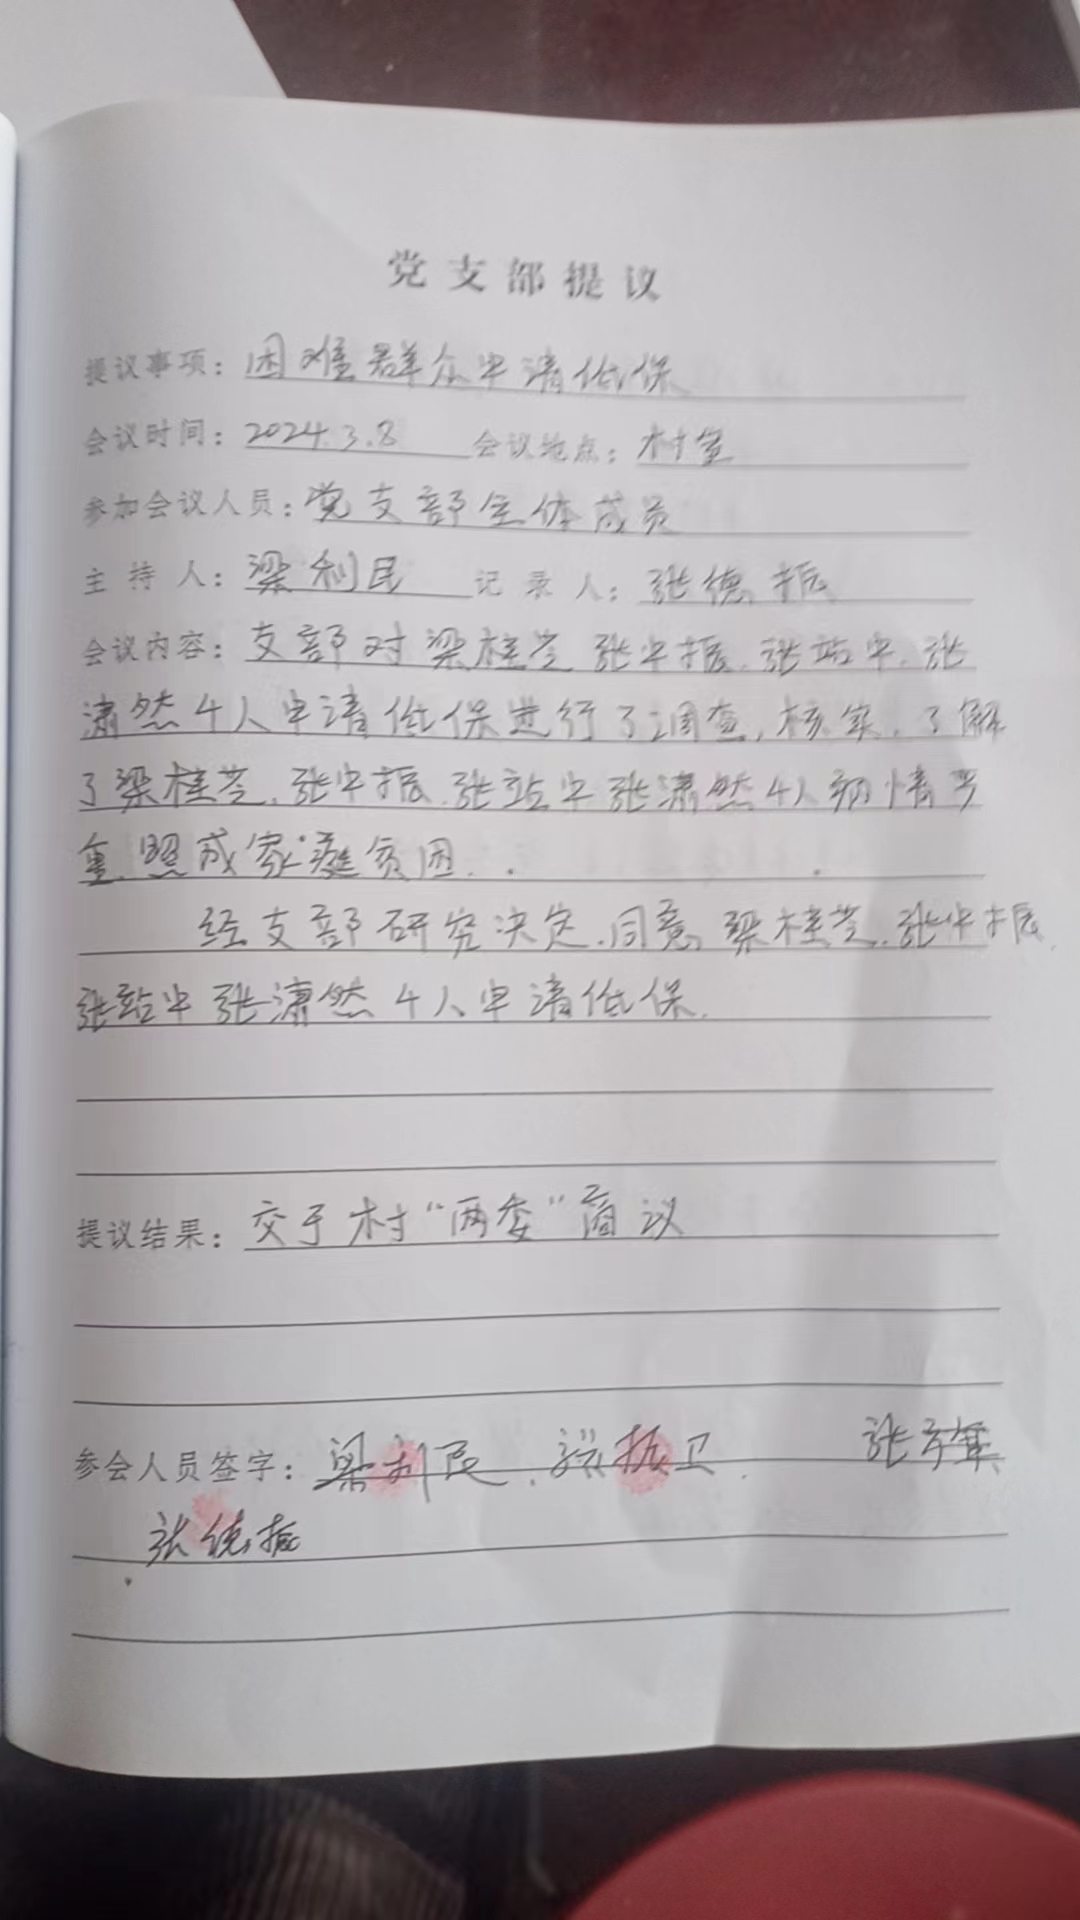 党支部提议
提议事项：困难群众申请低保
会议时间：2024.3.8 会议地点：村室
参加会议人员：党支部全体成员
主持人：梁利民 记录人：张德振
会议内容：支部对梁桂芝、张中振、张站中、张
潇然4人申请低保进行了调查，核实，了解
了梁桂芝、张中振、张站中张潇然4人病情严
重，照成家庭贫困．
经支部研究决定，同意梁桂芝、张中振、
张站中张潇然4人申请低保．
提议结果：交于村“两委”商议
参会人员签字：梁利民．张振卫．张
张德振